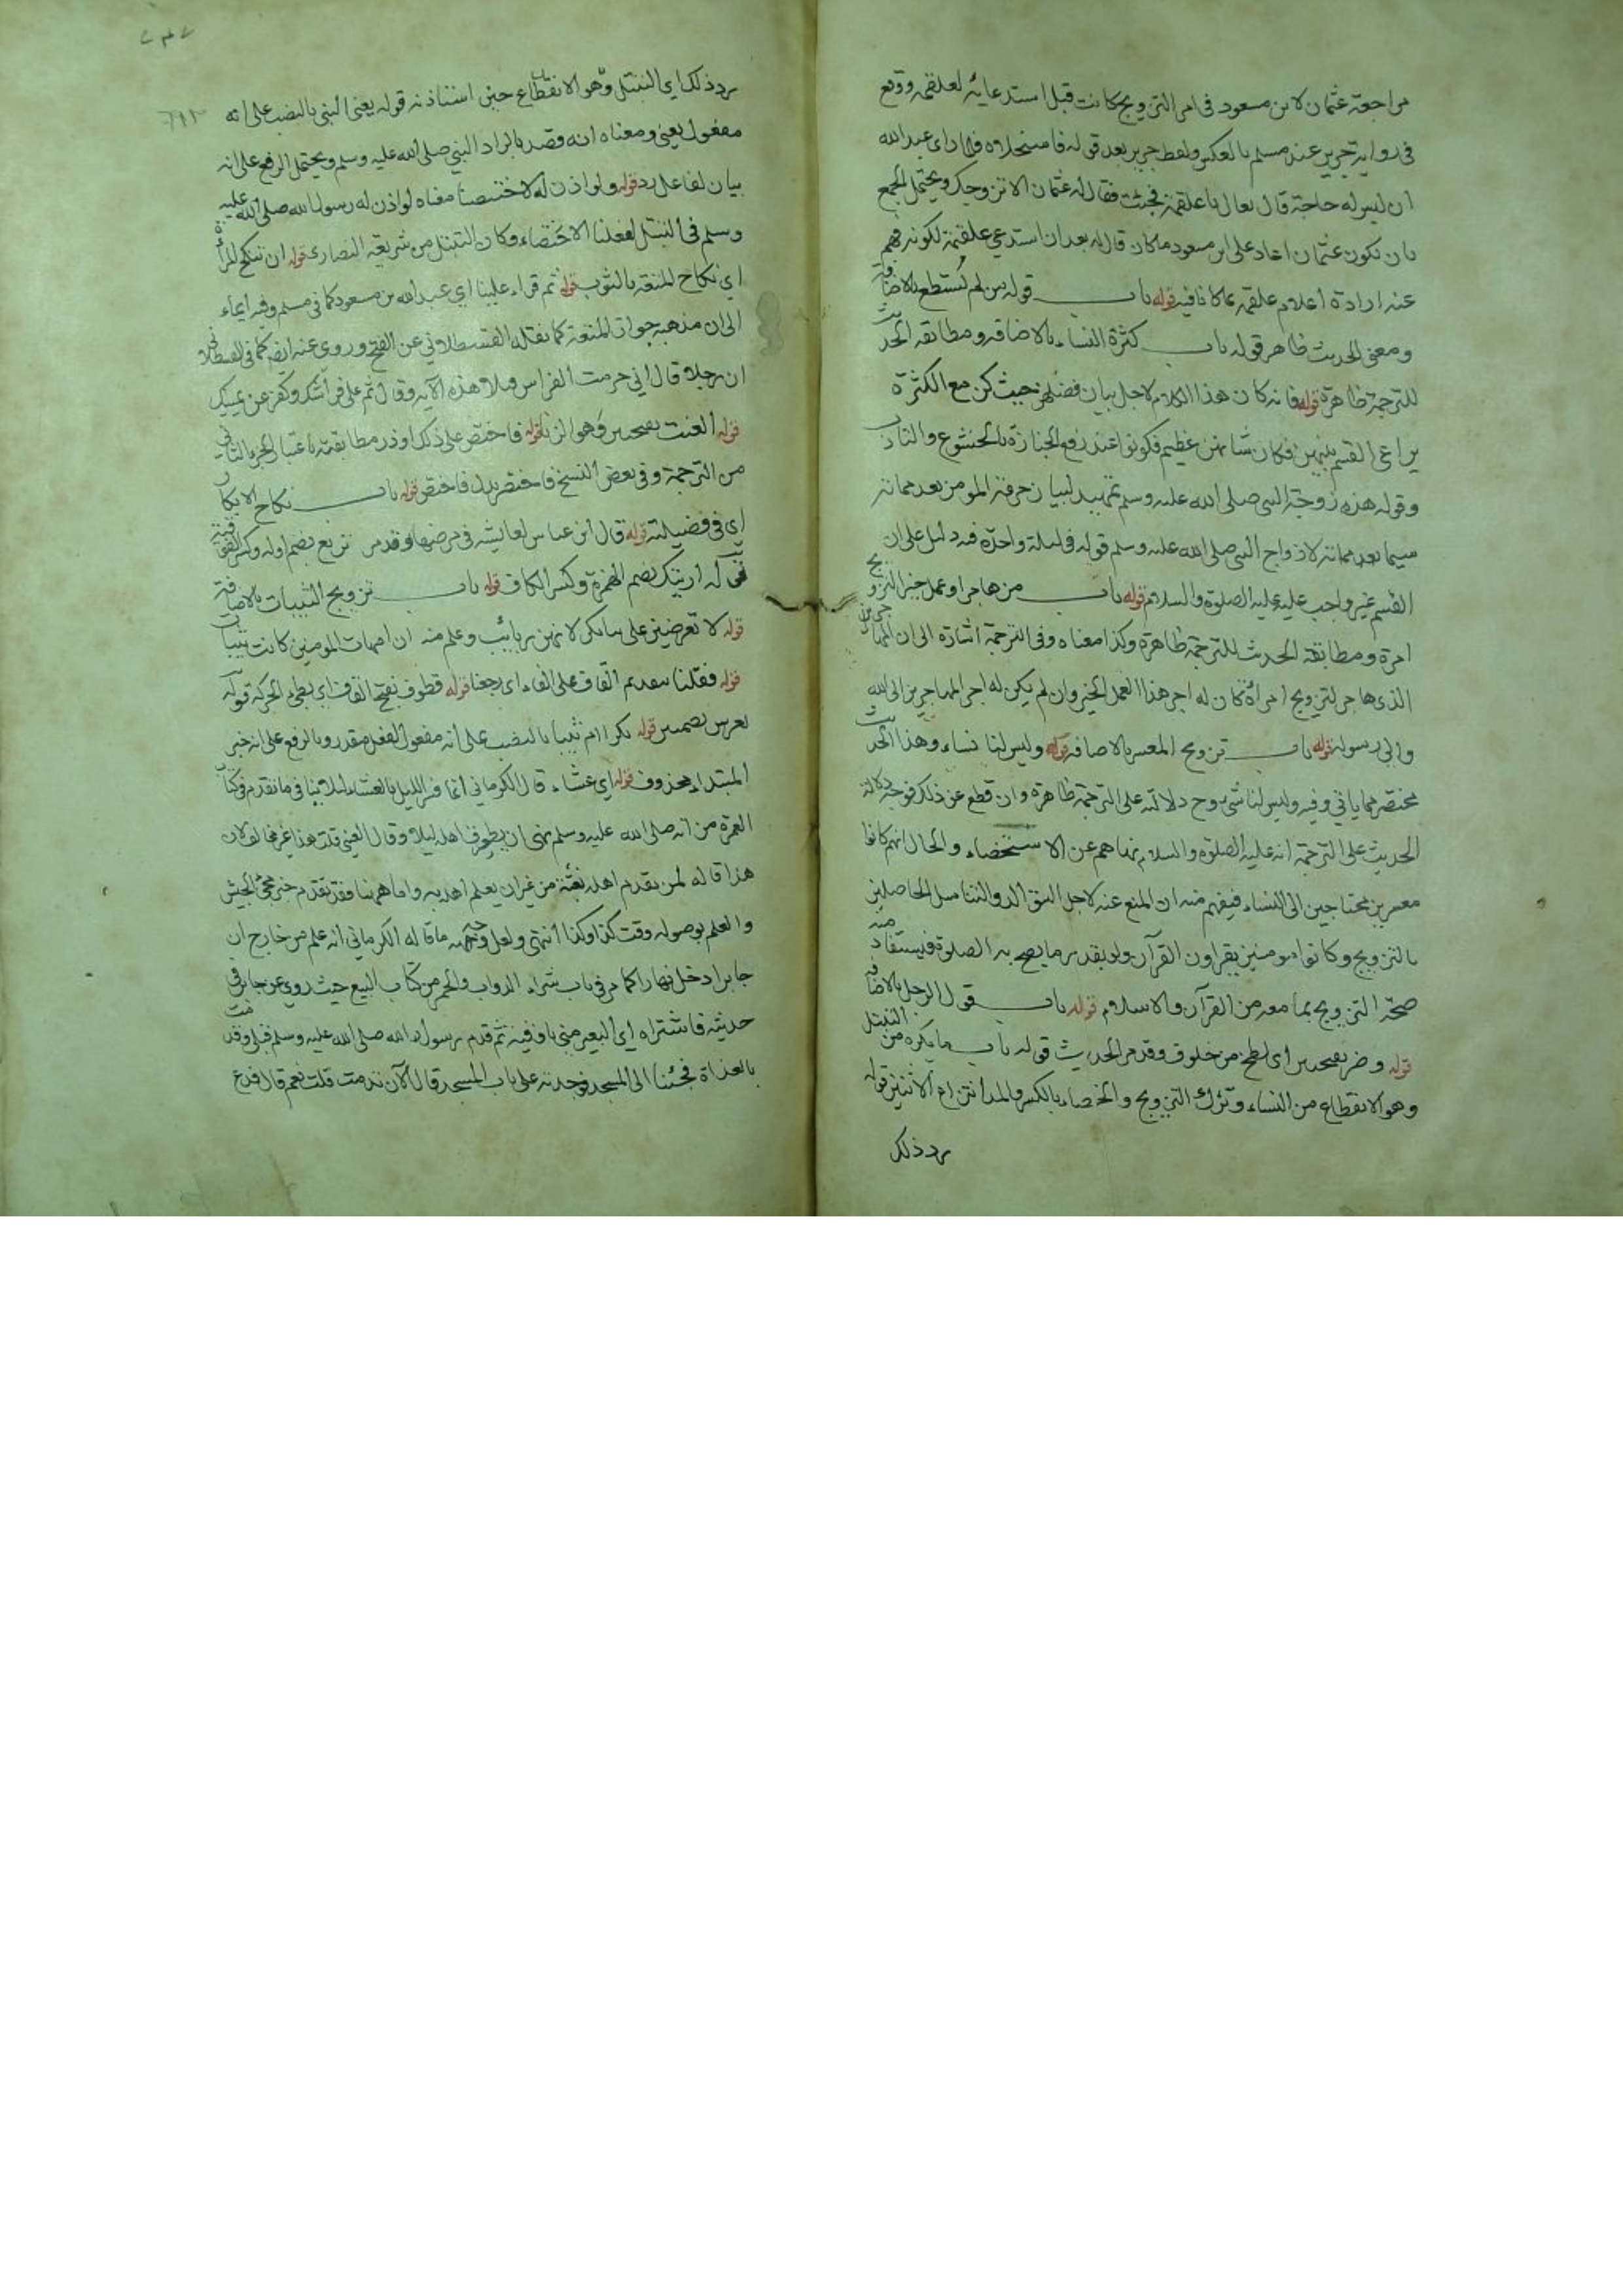 مراجعة عثمان لابن مسعود في امر التزويج كانت قبل استدعائه لعلقمة ووقع
في رواية جرير عند مسلم بالعكس ولفظ جرير بعد قوله فاستخلاه فلما راى عبد الله
ان ليس له حاجة قال تعال يا علقمة فجئت فقال له عثمان الا نزوجك ويحتمل الجمع
بان يكون عثمان اعاد على ابن مسعود ما كان قال له بعد ان استدعى علقمة لكونه فهم
عنه ارادة اعلام علقمة بما كانا فيه قوله باب قوله من لم يستطع بالاضافة
ومعنى الحديث ظاهر قوله باب كثرة النساء بالاضافة ومطابقة الحديث
للترجمة ظاهرة قوله فانه كان هذا الكلام لاجل بيان فضلهن حيث كن مع الكثرة
يراعى القسم بينهن فكان شانهن عظيم فكونوا عند رفع الجنازة بالخشوع والتادب
وقوله هذه زوجة النبي صلى الله عليه وسلم تمهيد لبيان حرمة المومن بعد مماته
سيما بعد مماته لازواج النبي صلى الله عليه وسلم قوله في ليلة واحدة فيه دليل على ان
القسم غير واجب عليه عليه الصلوة والسلام قوله باب من هاجر او عمل خيرا لتزويج
امرة ومطابقة الحديث للترجمة ظاهرة وكذا معناه وفي الترجمة اشارة الى ان المهاجرين
الذي هاجر لتزويج امراة كان له اجر هذا العمل الخير وان لم يكن له اجر المهاجرين الى الله
والى رسوله قوله باب تزويج المعسر بالاضافة قوله وليس لنا نساء وهذا الحديث
مختصر مما ياتي وفيه وليس لنا شي دلالته على الترجمة ظاهرة وان قطع عن ذلك فوجه دلالة
الحديث على الترجمة انه عليه الصلوة والسلام نهاهم عن الاستخصاء والحال انهم كانوا
معسرين محتاجين الى النساء فيفهم منه ان المنع عنه لاجل التوالد والتناسل الحاصلين
بالتزويج وكانوا مومنين يقراون القران ولو بقدر ما يصح به الصلوة فيستفاد منه
صحة التزويج بما معه من القران والاسلام قوله باب قول الرجل بالاضافة
قوله وضر بفتحتين اى لطخ من خلوق وقد مر الحديث قوله باب ما يكره من التبتل
وهو الانقطاع من النساء وترك التزويج والخصاء بالكسر والمد انتزاع الانثيين قوله
رد ذلك
رد ذلك اي التبتل وهو الانقطاع حين استاذنه قوله يعني النبي بالنصب على انه
مفعول يعني ومعناه انه قصد بالراد النبي صلى الله عليه وسلم ويحتمل الرفع على انه
بيان لفاعل رد قوله ولو اذن له لاختصينا معناه لو اذن له رسول الله صلى الله عليه
وسلم في التبتل لفعلنا الاختصاء وكان التبتل من شريعة النصارى قوله ان ننكح المراة
اي نكاح المتعة بالثوب قوله ثم قراء علينا اي عبد الله بن مسعود كما في مسلم وفيه ايماء
الى ان مذهبه جواز المتعة كما نقله القسطلاني عن الفتح وروي عنه ايضا كما في القسطلاني
ان رجلا قال اني حرمت الفراش فتلا هذه الآية وقال نم على فراشك وكفر عن يمينك
قوله العنت بفتحتين وهو الزنا قوله فاختص على ذلك او ذر مطابقته باعتبار الجزء الثاني
من الترجمة وفي بعض النسخ فاختصر بدل فاختص قوله باب نكاح الابكار
اي في فضيلته قوله قال ابن عباس لعايشة في مرضها وقد مر ترتع بضم اوله وكسر الفوقية
قوله اريتك بضم الهمزة وكسر الكاف قوله باب تزويج الثيبات بالاضافة
قوله لا تعرضن على بناتكن لانهن ربائب وعلم منه ان امهات المومنين كانت ثيبات
قوله فقفلنا بتقديم القاف على الفاء اى رجعنا قوله قطوف بفتح القاف اى بطيء الحركة قوله
بعرس بضمتين قوله بكرا ام ثيبا بالنصب على انه مفعول لفعل مقدر وبالرفع على انه خبر
المبتداء محذوف قوله اي عشاء قال الكرماني انما فسر الليل بالعشاء لئلا ينافي ما تقدم في كتاب
العمرة من انه صلى الله عليه وسلم نهى ان يطرق اهله ليلا وقال العيني قلت هذا غير مخالف لان
هذا قاله لمن يقدم اهله بغتة من غير ان يعلم اهله به واما ههنا فقد تقدم خبر مجئ الجيش
والعلم بوصوله وقت كذا وكذا انتهى ولعل وجه ما قاله الكرماني انه علم من خارج ان
جابرا دخل نهارا كما مر في باب شراء الدواب والحمر من كتاب البيع حيث روي عن جابر في
حديثه فاشتراه اي البعير مني باوقية ثم قدم رسول الله صلى الله عليه وسلم قبلي وقدمت
بالغداة فجئنا الى المسجد فوجدته على باب المسجد قال الآن قدمت قلت نعم قال فدع